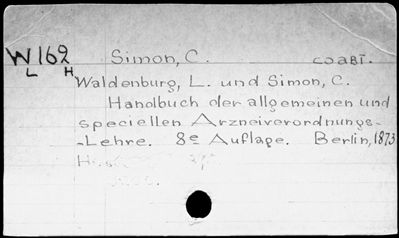 W162 Simon, C. coabt.
L H
Waldenburg, L. und Simon, C.
Handbuch der allgemeinen und
speciellen Arzneiverordnungs-
-Lehre. 8e Auflage. Berlin, 1873